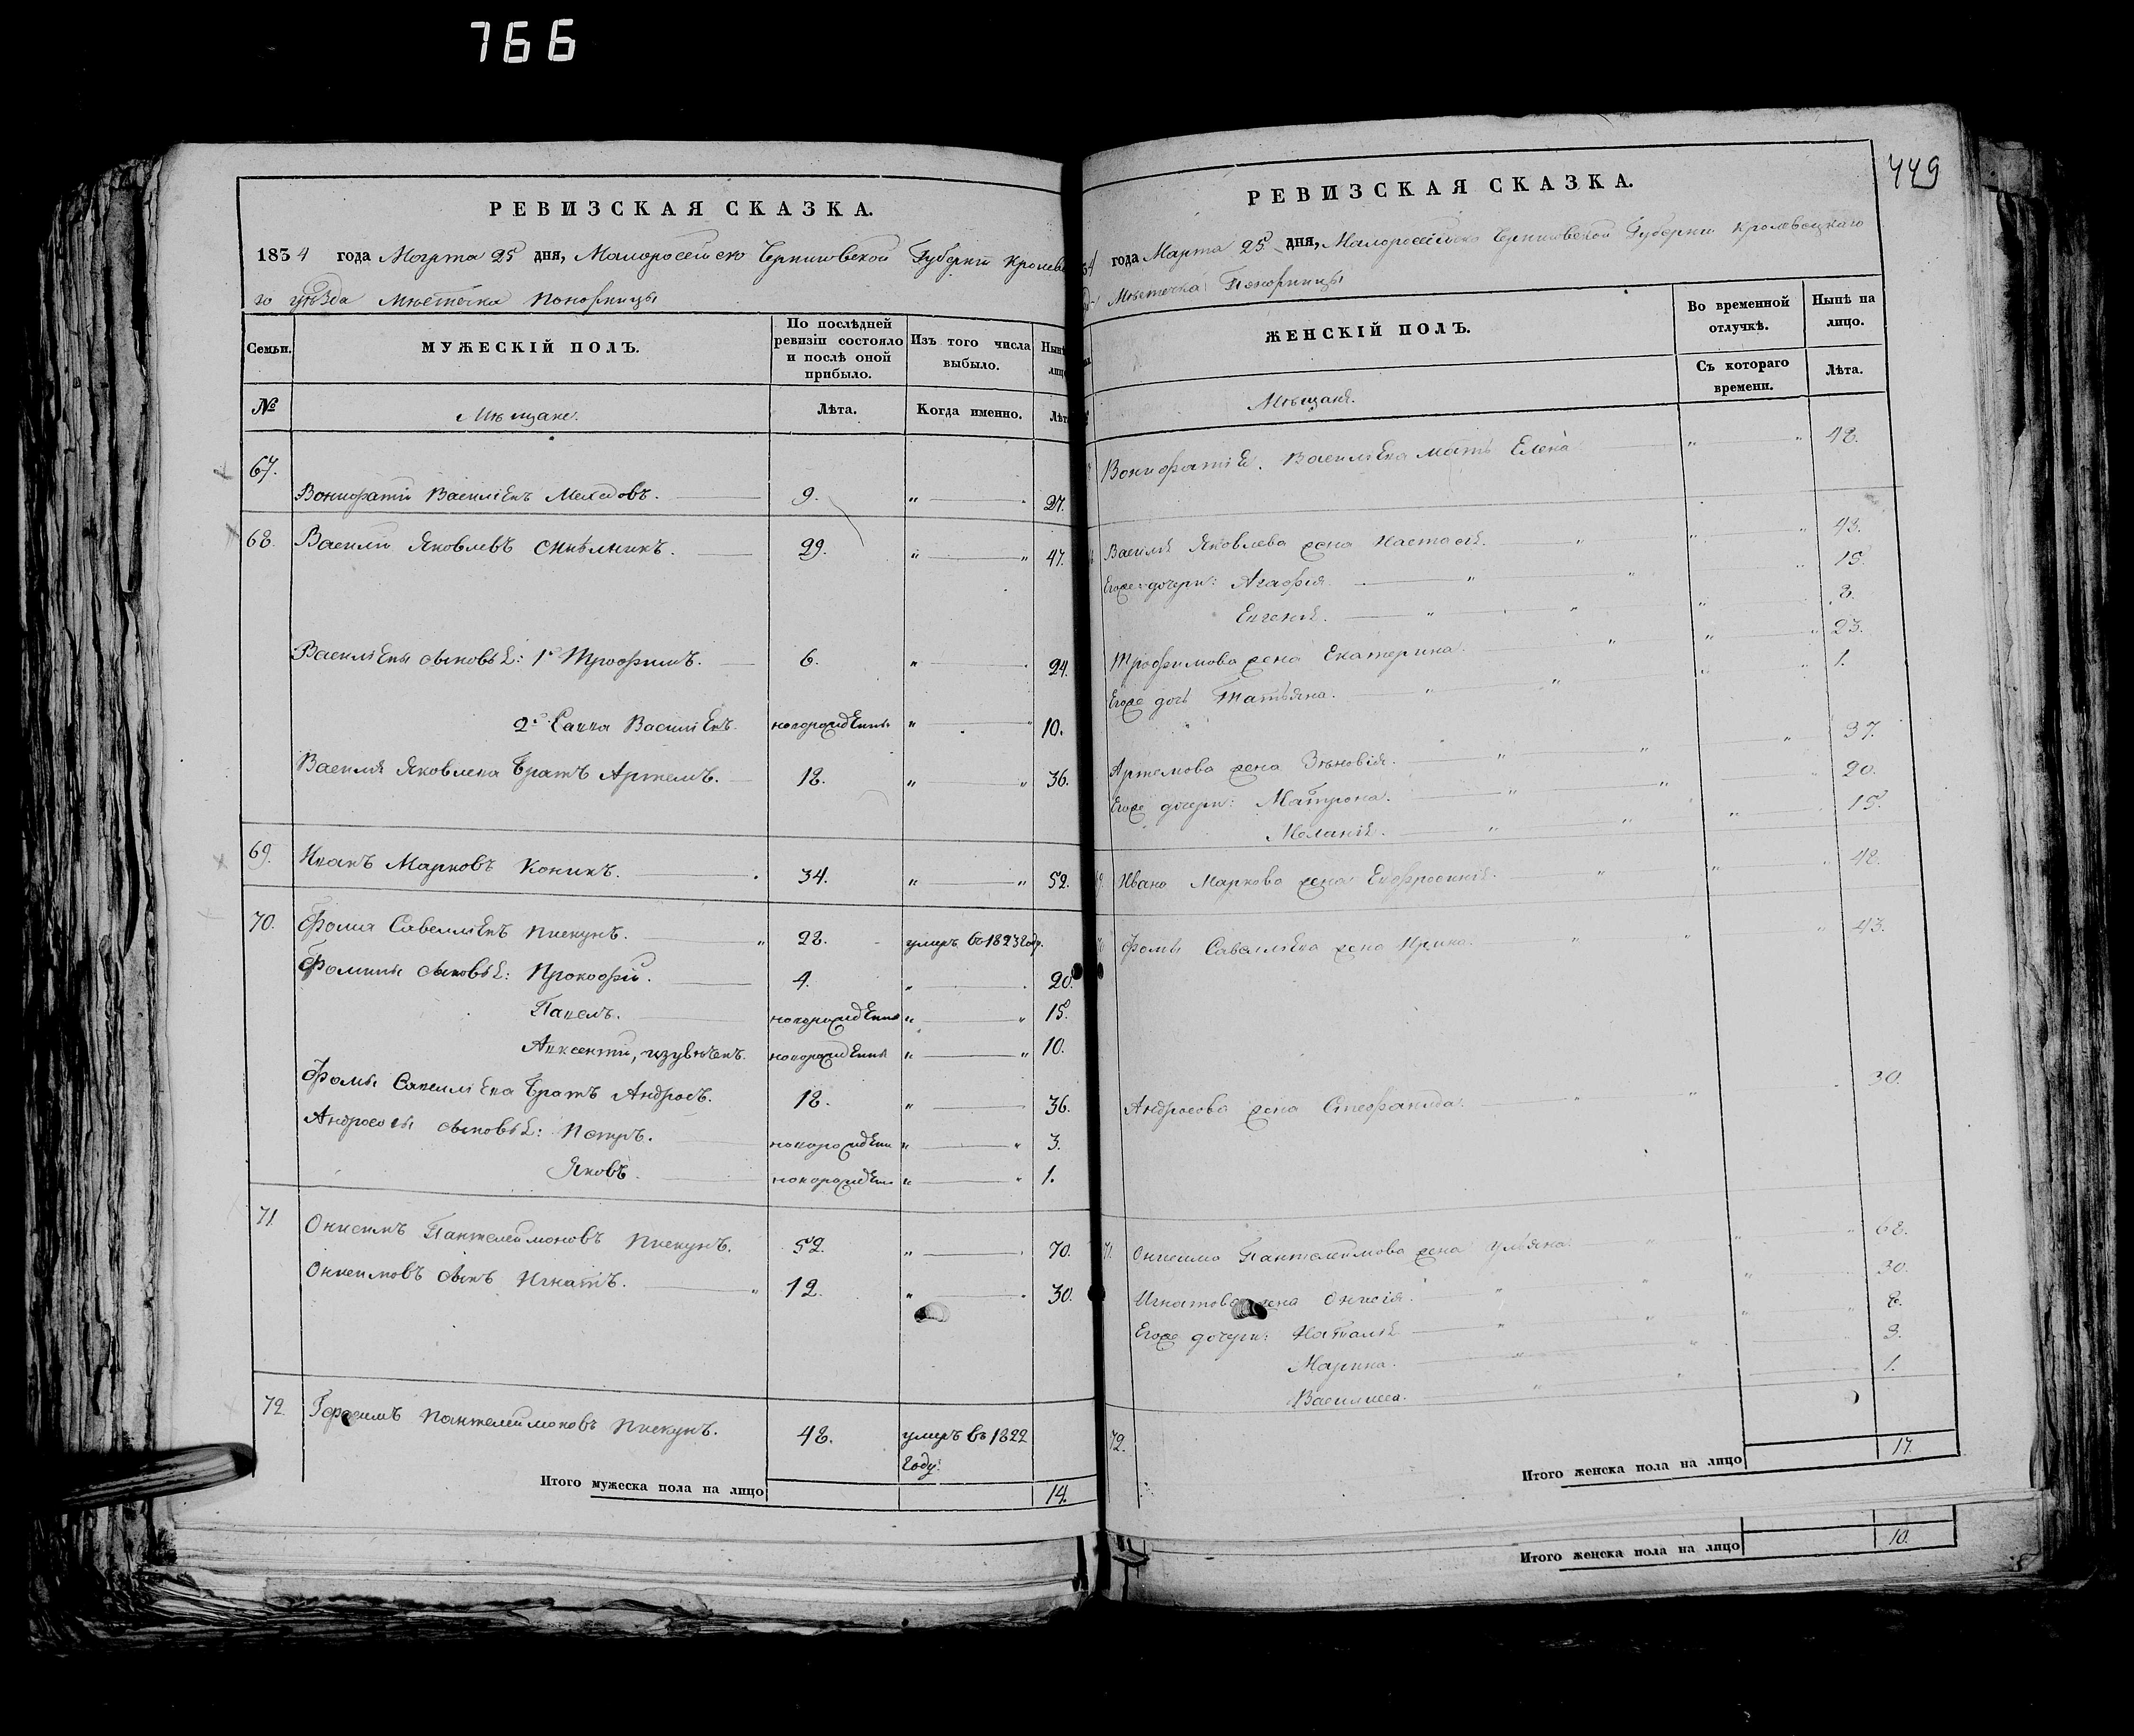 766
РЕВИЗСКАЯ СКАЗКА.
1834 года Марта 25 дня, Малоросейско Черниговской Губернии Кролев
го уѣзда Мѣстечка Понорницы
Семьи.
МУЖЕСКІЙ ПОЛЪ.
По послѣдней ревизіи состояло и послѣ оной прибыло.
Изъ того числа выбыло.
Нынѣ
лиц
№
Мѣщане.
Лѣта.
Когда именно.
Лѣт
67.
Вонифатій Василіевъ 9. " " 27.
68. Василій Яковлевъ 29. " " 47.
Василіевы сыновья: 1й Трофимъ. 6. " " 24.
2й Савва Василіевъ. новорожденный " " 10.
Василія Яковлева братъ Артемъ. 18. " " 36.
69. Иванъ Марковъ Коникъ. 34. " " 52.
70. Фома Савелліевъ Пискунъ. " 28. умеръ въ 1823 году.
Фомины сыновья: Прокофій. 4. " " 20.
Павелъ. новорожденный " " 15.
Авксентій, новорожденный " " 10.
Фомы Савелліева братъ Андросъ. 18. " 36.
Андросовы сыновья: Петръ. новорожден " " 3.
Яковъ. новорожден " " 1.
71. Онисимъ Пантелеймоновъ Пискунъ. 52. " " 70.
Онисимовъ сынъ Игнатъ. " 12. " " 30.
72. Герасимъ Пантелеймоновъ Пискунъ. 48. умеръ въ 1822
году.
Итого мужеска пола на лицо 14.
449
РЕВИЗСКАЯ СКАЗКА.
4 года Марта 25 дня, Малоросейско Черниговской Губернии Кролевецкаго
Мѣстечка Понорницы
ЖЕНСКІЙ ПОЛЪ.
Во временной отлучкѣ.
Нынѣ на лицо.
Съ котораго времени.
Лѣта.
Мѣщане.
Вонифатія Василіева мать Елена " " 48.
Василія Яковлева жена Настасія. " " " 43.
Егоже дочери: Агафія. " " " 15.
Евгенія. " " " 8.
Трофимова жена Екатерина. " " " 23.
Егоже дочь Татьяна. " " " 1.
Артемова жена Зѣновія. " " " 37.
Егоже дочери: Матрона. " " " 20.
Меланія. " " " 15.
Ивана Маркова жена Евфросинія. " " " 48.
Фомы Савелліева жена Ирина. " " " 43.
Андросова жена Стефанида. " " 30.
71. Онисима Пантелеймова жена Ульяна. " " " 68.
Игнатова жена Онисія. " " " 30.
Егоже дочери: Наталія. " " " 8.
Марина. " " 3.
Василиса. " " 1.
72.
Итого женска пола на лицо 17.
Итого женска пола на лицо 10.